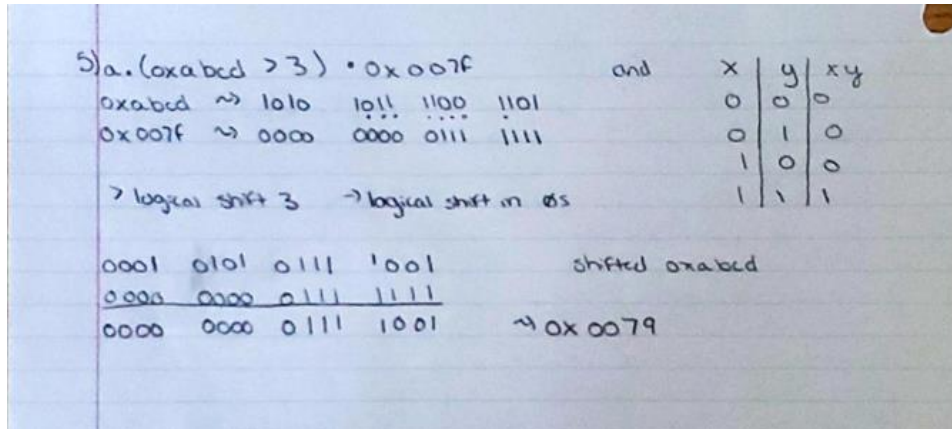 5)a. (oxabcd > 3) • 0x007f
and
x | y | xy
oxabcd ~> 1010 1011 1100 1101
0 | 0 | 0
0x007f ~> 0000 0000 0111 1111
0 | 1 | 0
1 | 0 | 0
> logical shift 3 → logical shift in 0s
1 | 1 | 1
0001 0101 0111 1001 shifted oxabcd
0000 0000 0111 1111
0000 0000 0111 1001 ~> 0x0079